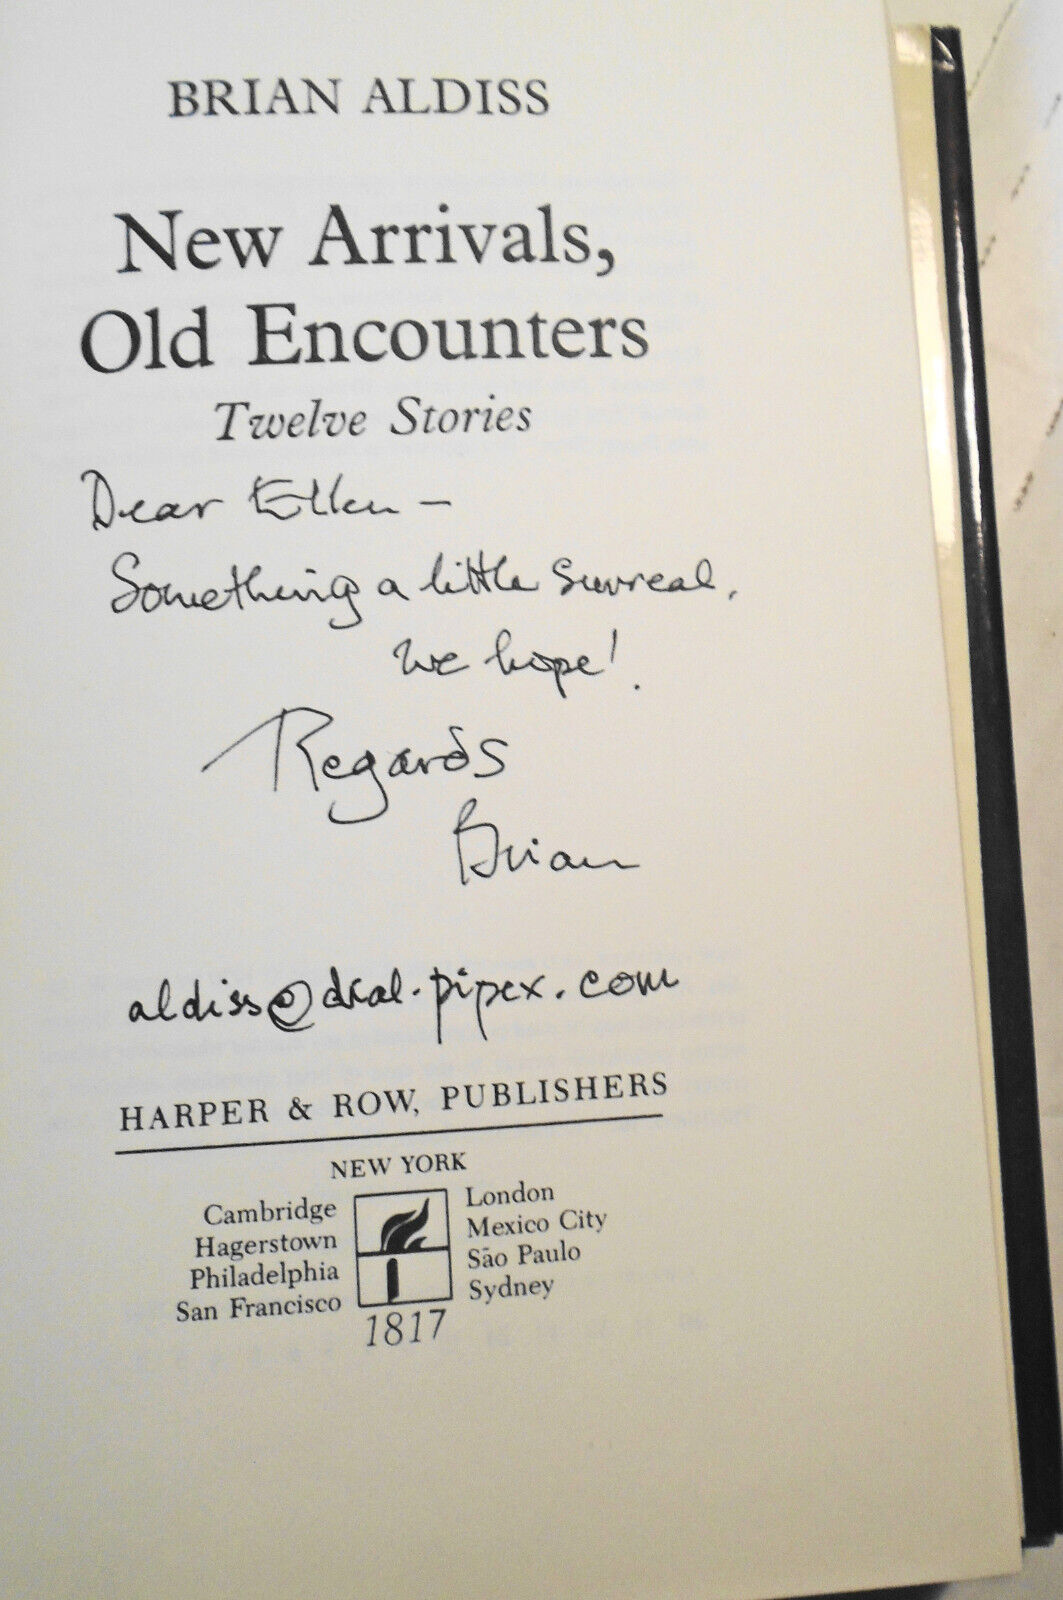 BRIAN ALDISS
New Arrivals,
Old Encounters
Twelve Stories
Dear Ellen –
Something a little surreal,
we hope!
Regards
Brian
aldiss@dial.pipex.com
HARPER & ROW, PUBLISHERS
NEW YORK
Cambridge
Hagerstown
Philadelphia
San Francisco
London
Mexico City
São Paulo
Sydney
1817